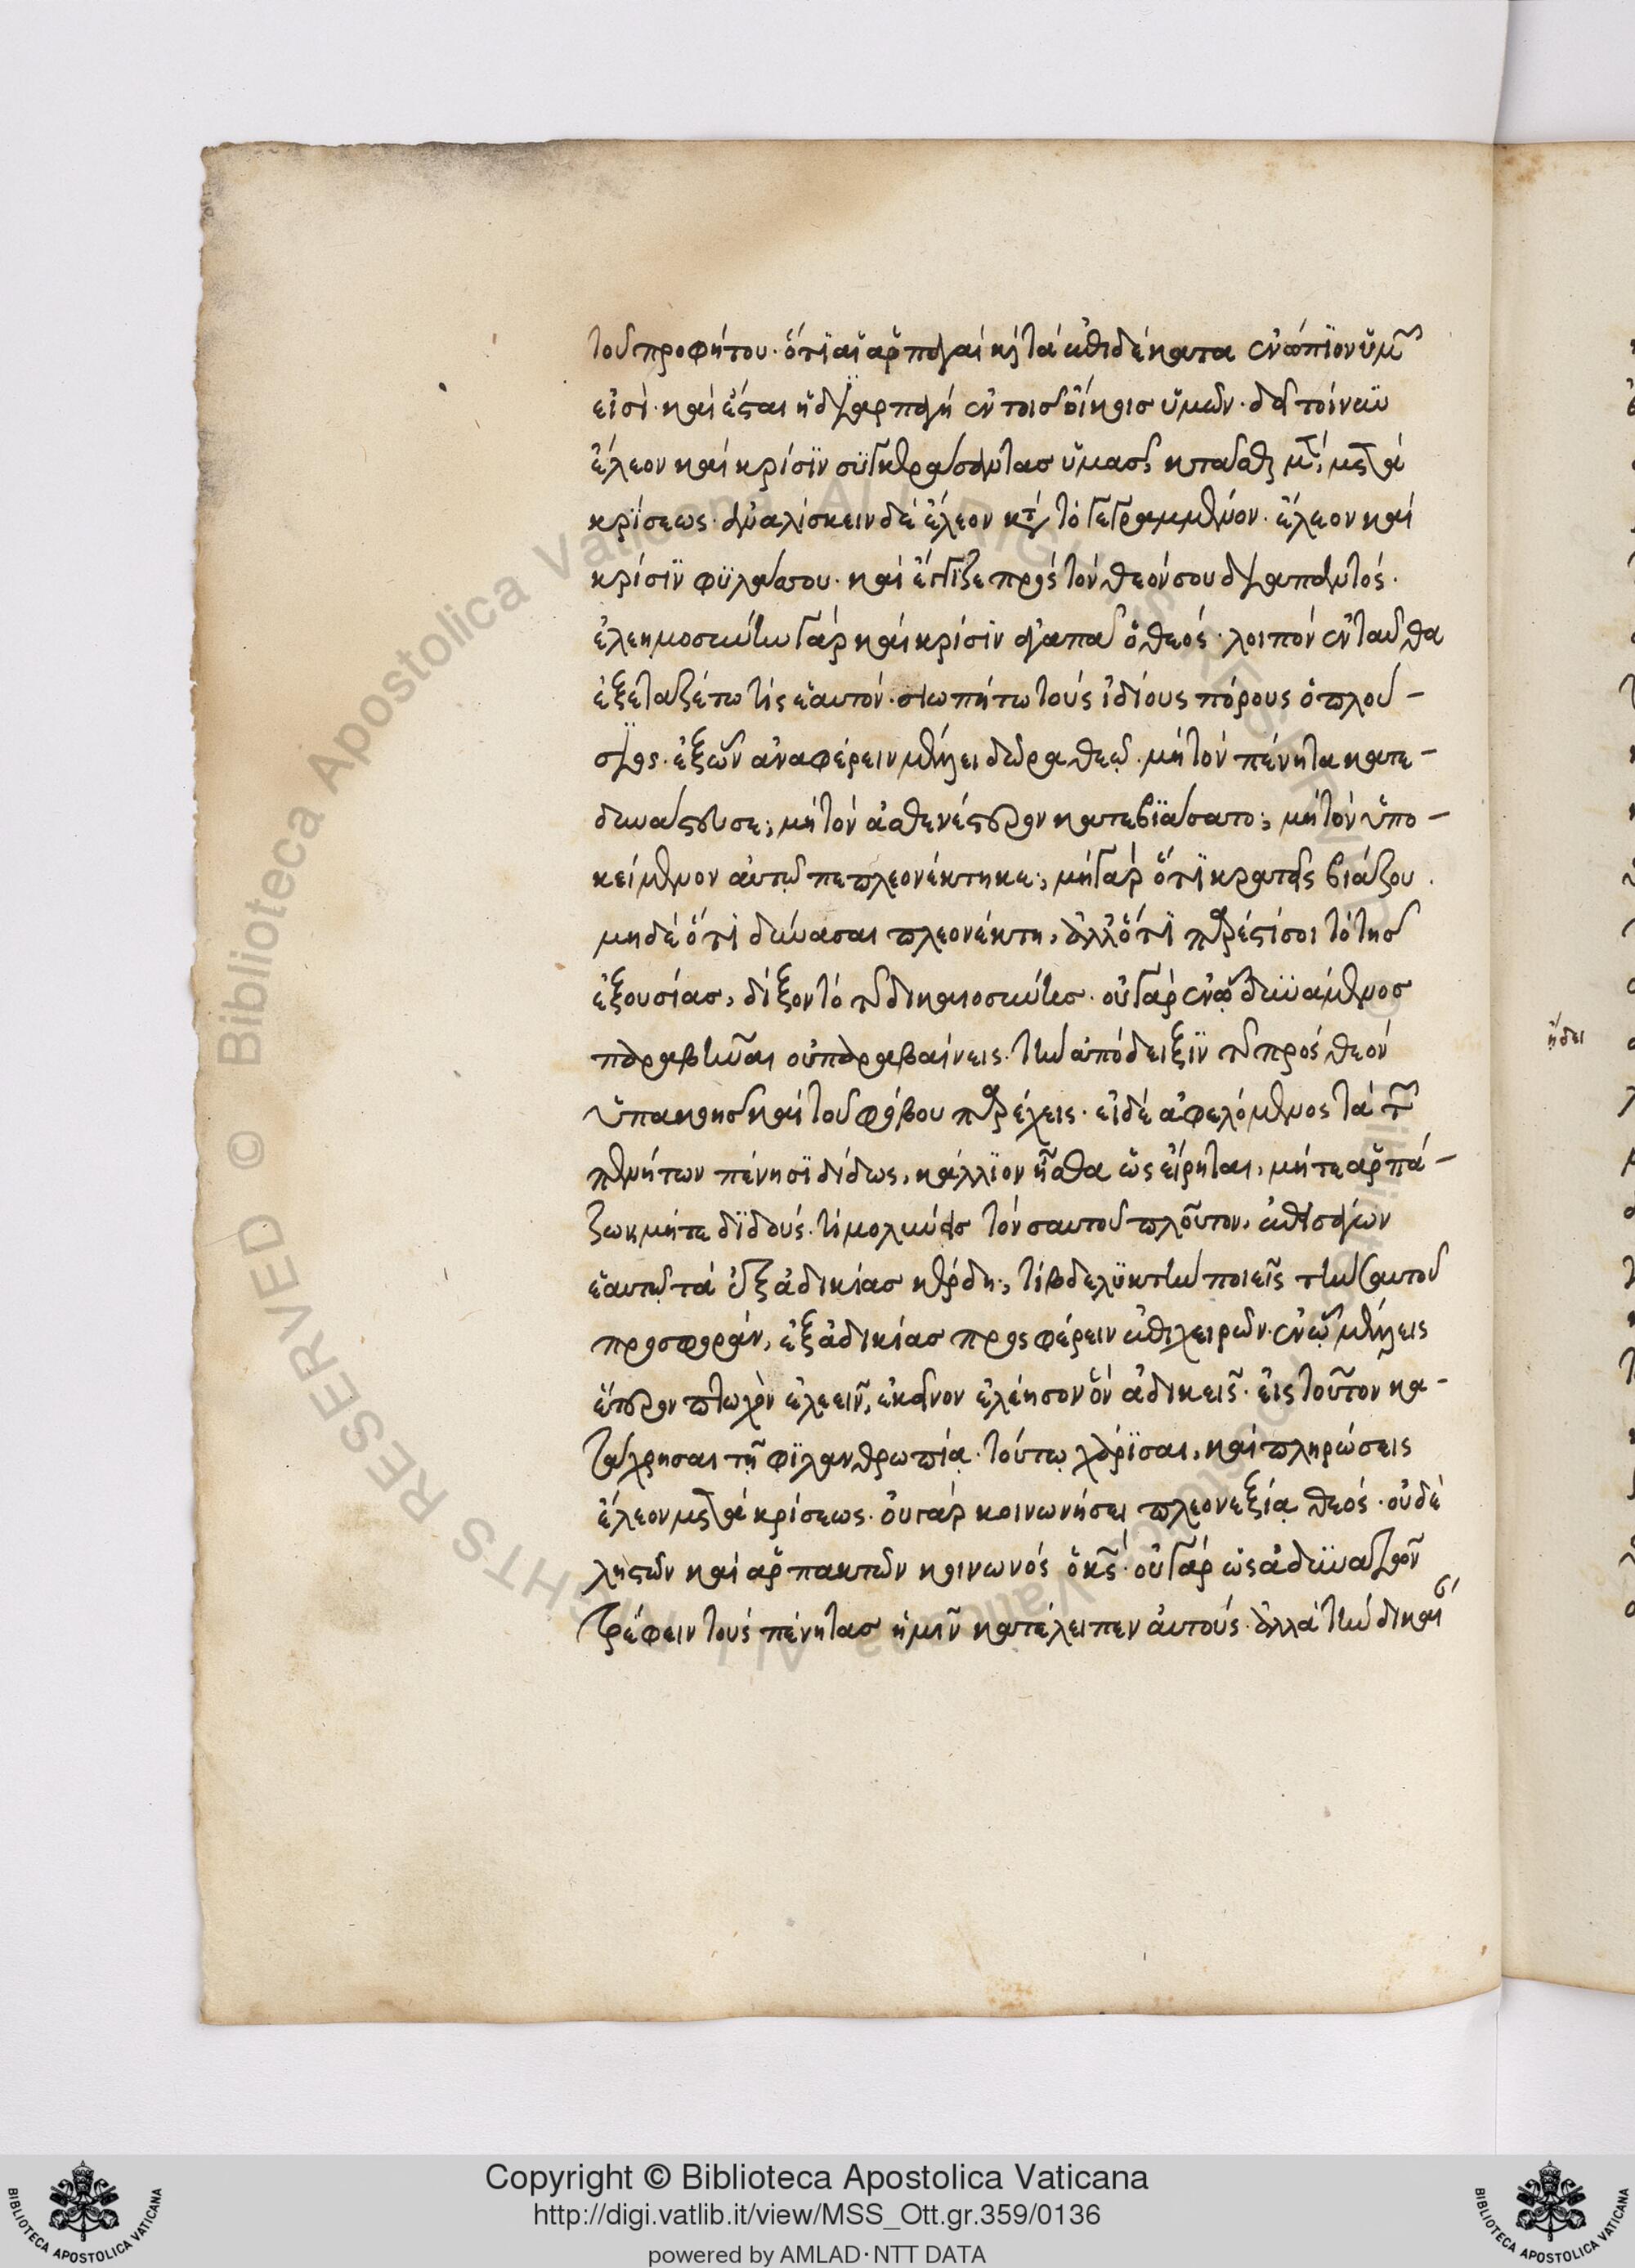 τοῦ προφήτου· ὅτι αἱ ἁρπαγαὶ κ(αὶ) τὰ ἐπιδέκατα ἐνώπιον ὑμῶν
εἰσί· καὶ ἔσται ἡ διαρπαγὴ ἐν τοῖς οἴκοις ὑμῶν· δεῖ τοίνυν
ἔλεον καὶ κρίσιν συγκεράσαντας ὑμᾶς, κτᾶσθαι μὲν, μετὰ
κρίσεως· ἀναλίσκειν δὲ ἔλεον κατὰ τὸ γεγραμμένον· ἔλεον καὶ
κρίσιν φυλάσσου· καὶ ἔγγιζε πρὸς τὸν θεόν σου διαπαντός·
ἐλεημοσύνην γὰρ καὶ κρίσιν ἀγαπᾶ ὁ θεός· λοιπὸν ἐνταῦθα
ἐξεταζέτω τίς ἑαυτόν· σκοπείτω τοὺς ἰδίους πόρους ὁ πλού-
σιος· ἐξ ὧν ἀναφέρειν μέλλει δῶρα θεῷ· μὴ τὸν πένητα κατε-
δυνάστευσε; μὴ τὸν ἀσθενέστερον κατεβιάσατο; μὴ τὸν ὑπο-
κείμενον αὐτῷ πεπλεονέκτηκε; μὴ γὰρ ὅτι κρατεῖς βιάζου
μηδὲ ὅτι δύνασαι πλεονέκτη, ἀλλ' ὅτι πάρεστί σοι τὸ τῆς
ἐξουσίας, δίξον τὸ τῆς δικαιοσύνης· οὐ γὰρ ἐν ᾧ δυνάμενος
παραβῆναι οὐ παραβαίνεις· τὴν ἀπόδειξιν τῆς πρὸς θεὸν
ὑπακοῆς καὶ τοῦ φόβου παρέχεις· εἰ δὲ ἀφελόμενος τὰ τῶν
πενήτων πένησι δίδως, κάλλιον ἦσθα ὡς εἴρηται, μήτε ἁρπά-
ζων μήτε διδούς· τί μολύνεις τὸν σαυτοῦ πλοῦτον, ἐπεισάγων
ἑαυτῷ τὰ ἐξ ἀδικίας κέρδη; τί βδελυκτὴν ποιεῖς τὴν σαυτοῦ
προσφοράν, ἐξ ἀδικίας προσφέρειν ἐπιχειρῶν· ἐν ᾧ μέλλεις
ἕτερον πτωχὸν ἐλεεῖν, ἐκεῖνον ἐλέησον ὃν ἀδικεῖς· εἰς τοῦτον κα-
τάχρησαι τῇ φιλανθρωπίᾳ· τούτῳ χάρισαι, καὶ πληρώσεις
ἔλεον μετὰ κρίσεως· οὐ γὰρ κοινωνήσει πλεονεξίᾳ θεός· οὐδὲ
λῃστῶν καὶ ἁρπακτῶν κοινωνὸς ὁ κ(ύριο)ς· οὐ γὰρ ὡς ἀδυνατῶν
τρέφειν τοὺς πένητας ἡμῖν κατέλειπεν αὐτούς· ἀλλὰ τὴν
ᾔδει
Copyright © Biblioteca Apostolica Vaticana
http://digi.vatlib.it/view/MSS_Ott.gr.359/0136
powered by AMLAD·NTT DATA
BIBLIOTECA APOSTOLICA VATICANA
BIBLIOTECA APOSTOLICA VATICANA